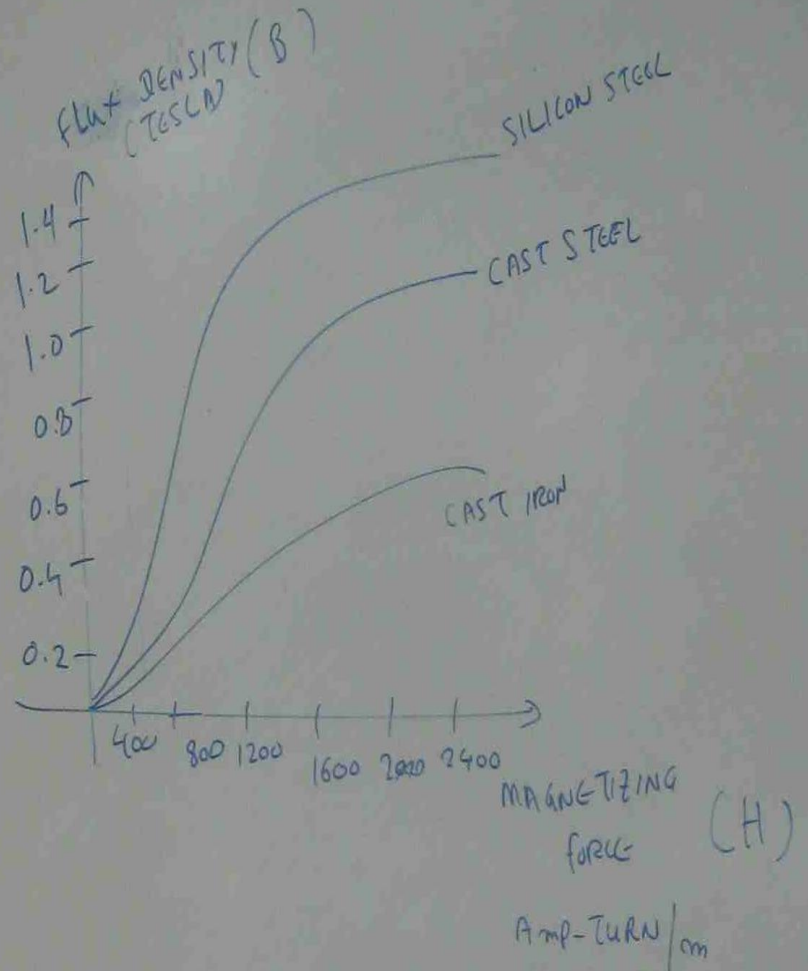 Flux DENSITY (B)
(TESLA)
SILICON STEEL
1.4
CAST STEEL
1.2
1.0
0.8
0.6
CAST IRON
0.4
0.2
400 800 1200 1600 2000 2400
MAGNETIZING
forCE (H)
Amp-TURN/m